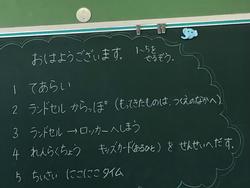 おはようございます。
1〜5を
やるぞう。
1 てあらい
2 ランドセル からっぽ(もってきたものは、つくえのなかへ)
3 ランドセル→ロッカーへしまう
4 れんらくちょう キッズカード(あるひと)をせんせいへだす。
5 ちいさい にこにこタイム